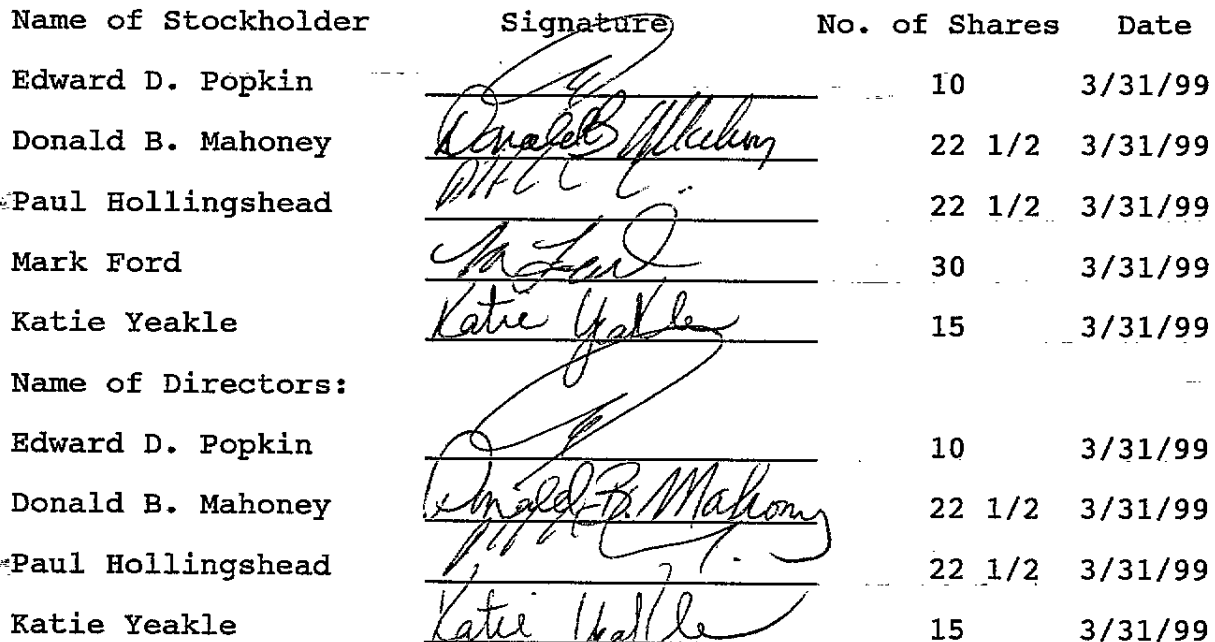 Name of Stockholder Signature No. of Shares Date
Edward D. Popkin 10 3/31/99
Donald B. Mahoney Donald B Mahoney 22 1/2 3/31/99
Paul Hollingshead 22 1/2 3/31/99
Mark Ford M Ford 30 3/31/99
Katie Yeakle Katie Yeakle 15 3/31/99
Name of Directors:
Edward D. Popkin 10 3/31/99
Donald B. Mahoney Donald B. Mahoney 22 1/2 3/31/99
Paul Hollingshead 22 1/2 3/31/99
Katie Yeakle Katie Yeakle 15 3/31/99